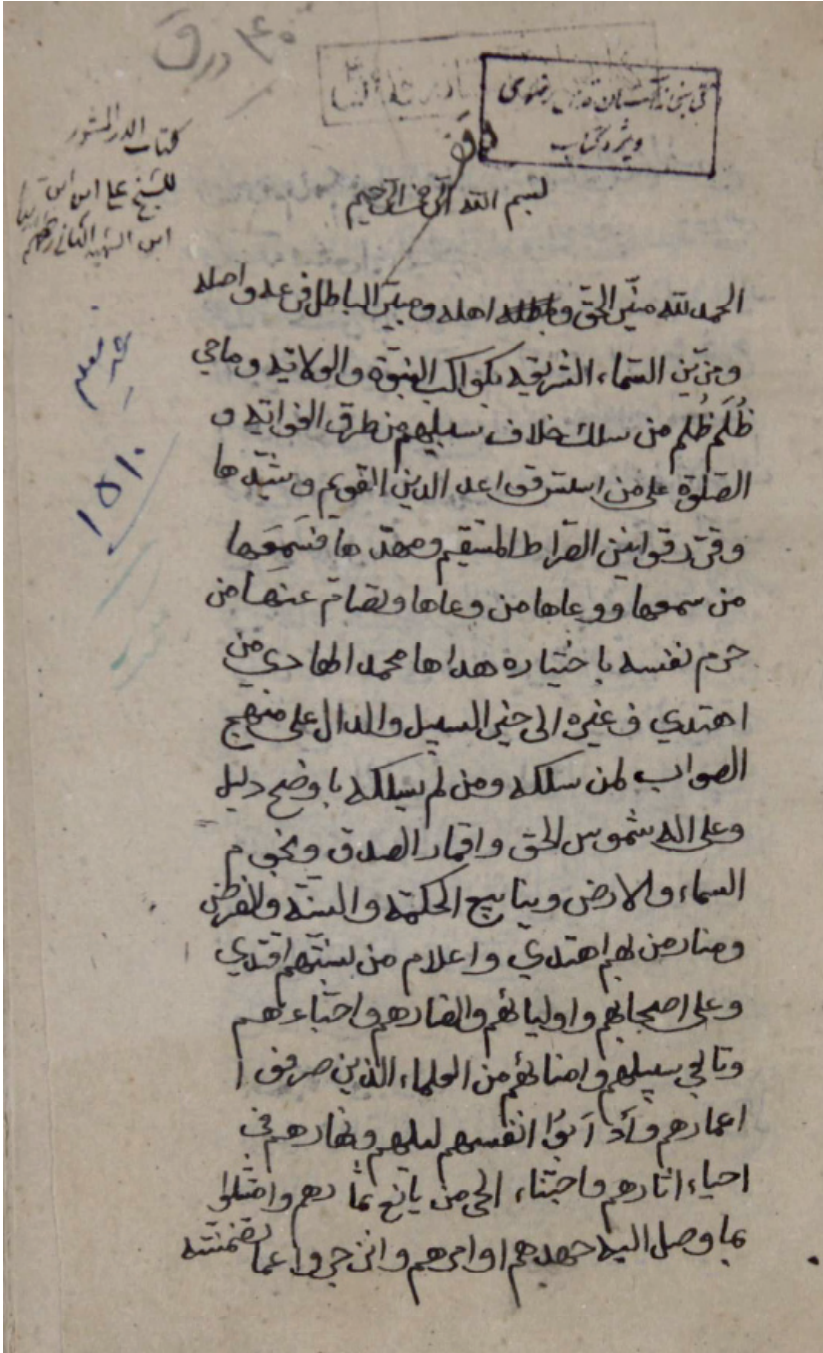 ۴۰ ورق
کتابخانه آستان قدس رضوی
ویژه کتاب
وقف
کتاب الدر المنثور
للشیخ علی ابن
ابن الشهید الثانی
۱۵۱۰
بسم الله الرحمن الرحیم
الحمد لله مبین الحق واهله ومبین الباطل فرعه واصله
ومزین السماء الشریعه بکواکب النبوة والولایه وماحی
ظُلَم ظُلم من سلک خلاف سبیلهم من طرق الغوایه و
الصلوة علی من اسس قواعد الدین القویم وشیدها
وقرر قوانین الصراط المستقیم ومهدها فسَمِعَها
من سمعها ووعاها من وعاها وتصام عنها من
حرم نفسه باختیاره هداها محمد الهادی من
اهتدی فی غیره الی خیر السبیل والدال علی منهج
الصواب لمن سلکه ومن لم یسلکه باوضح دلیل
وعلی اله شموس الحق واقمار الصدق ونجوم
السماء والارض وینابیع الحکمة والسنة والفرض
ومنار من بهم اهتدی واعلام من بسنتهم اقتدی
وعلی اصحابهم واولیائهم وانصارهم واحباءهم
وتابعی سبیلهم وامنائهم من العلماء الذین صرفوا
اعمارهم وأدأبوُا انفسهم لیلهم ونهارهم فی
احیاء اثارهم واجتناء الجی من یانع ثمارهم وامتثلوا
بما وصل الیه جهدهم اوامرهم وانزجروا عما تضمنته